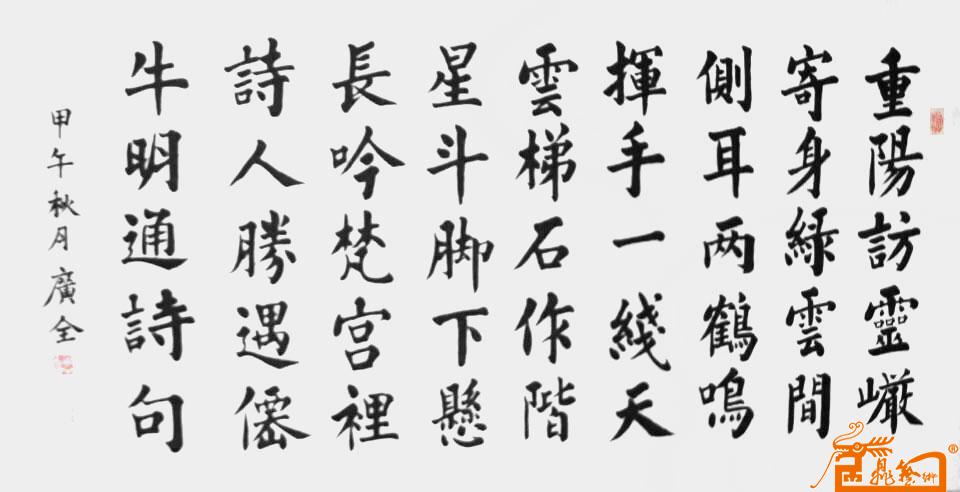 重陽訪靈巗
寄身緑雲間
側耳两鶴鳴
揮手一綫天
雲梯石作階
星斗脚下懸
長吟梵宮裡
詩人勝遇僊
牛明通詩句
甲午秋月廣全